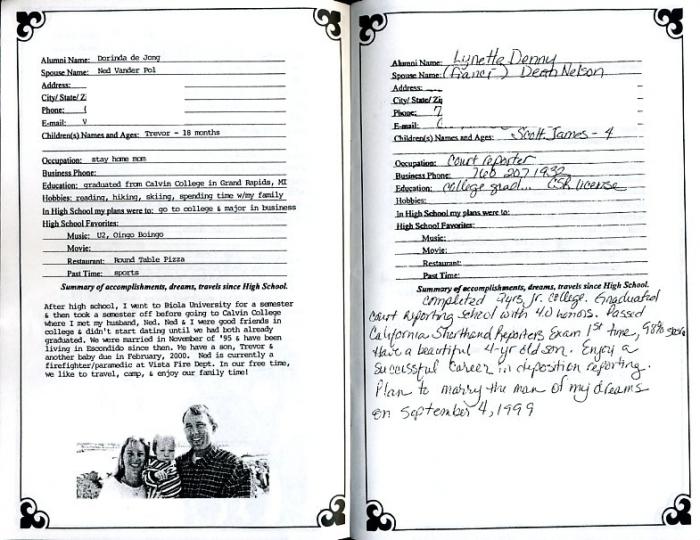 Alumni Name: Dorinda de Jong
Spouse Name: Ned Vander Pol
Address:
City/ State/ Z
Phone: (
E-mail: V
Children(s) Names and Ages: Trevor - 18 months
Occupation: stay home mom
Business Phone:
Education: graduated from Calvin College in Grand Rapids, MI
Hobbies: reading, hiking, skiing, spending time w/my family
In High School my plans were to: go to college & major in business
High School Favorites:
Music: U2, Oingo Boingo
Movie:
Restaurant: Round Table Pizza
Past Time: sports
Summary of accomplishments, dreams, travels since High School.
After high school, I went to Biola University for a semester
& then took a semester off before going to Calvin College
where I met my husband, Ned. Ned & I were good friends in
college & didn't start dating until we had both already
graduated. We were married in November of '95 & have been
living in Escondido since then. We have a son, Trevor &
another baby due in February, 2000. Ned is currently a
firefighter/paramedic at Vista Fire Dept. In our free time,
we like to travel, camp, & enjoy our family time!
Alumni Name: Lynette Denny
Spouse Name: (Fiancé) Dean Nelson
Address:
City/ State/ Zi
Phone: 7
E-mail: (
Children(s) Names and Ages: Scott James - 4
Occupation: Court reporter
Business Phone: 760 207 1932
Education: College grad... CSR license
Hobbies:
In High School my plans were to:
High School Favorites:
Music:
Movie:
Restaurant:
Past Time:
Summary of accomplishments, dreams, travels since High School.
Completed 2yrs Jr. College. Graduated
Court Reporting School with 4.0 honors. Passed
California Shorthand Reporters Exam 1st time, 98% score
Have a beautiful 4-yr old son. Enjoy a
Successful Career in deposition reporting.
Plan to marry the man of my dreams
on September 4, 1999